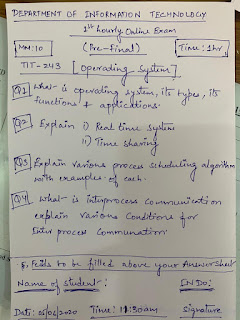 DEPARTMENT OF INFORMATION TECHNOLOGY
1st hourly Online Exam
MM:10 (Pre-final) Time: 1hr
TIT-243 [Operating System]
Q1 What is operating system, its types, its
functions & applications.
Q2 Explain i) Real time system
ii) Time sharing
Q3 Explain various process scheduling algorithm
with examples of each.
Q4 What is interprocess communication
explain various conditions for
Inter process Communation.
to be filled above your Answersheet
Name of student: INDO:
Dat: 05/06/2020 Time: 11:30am Signature